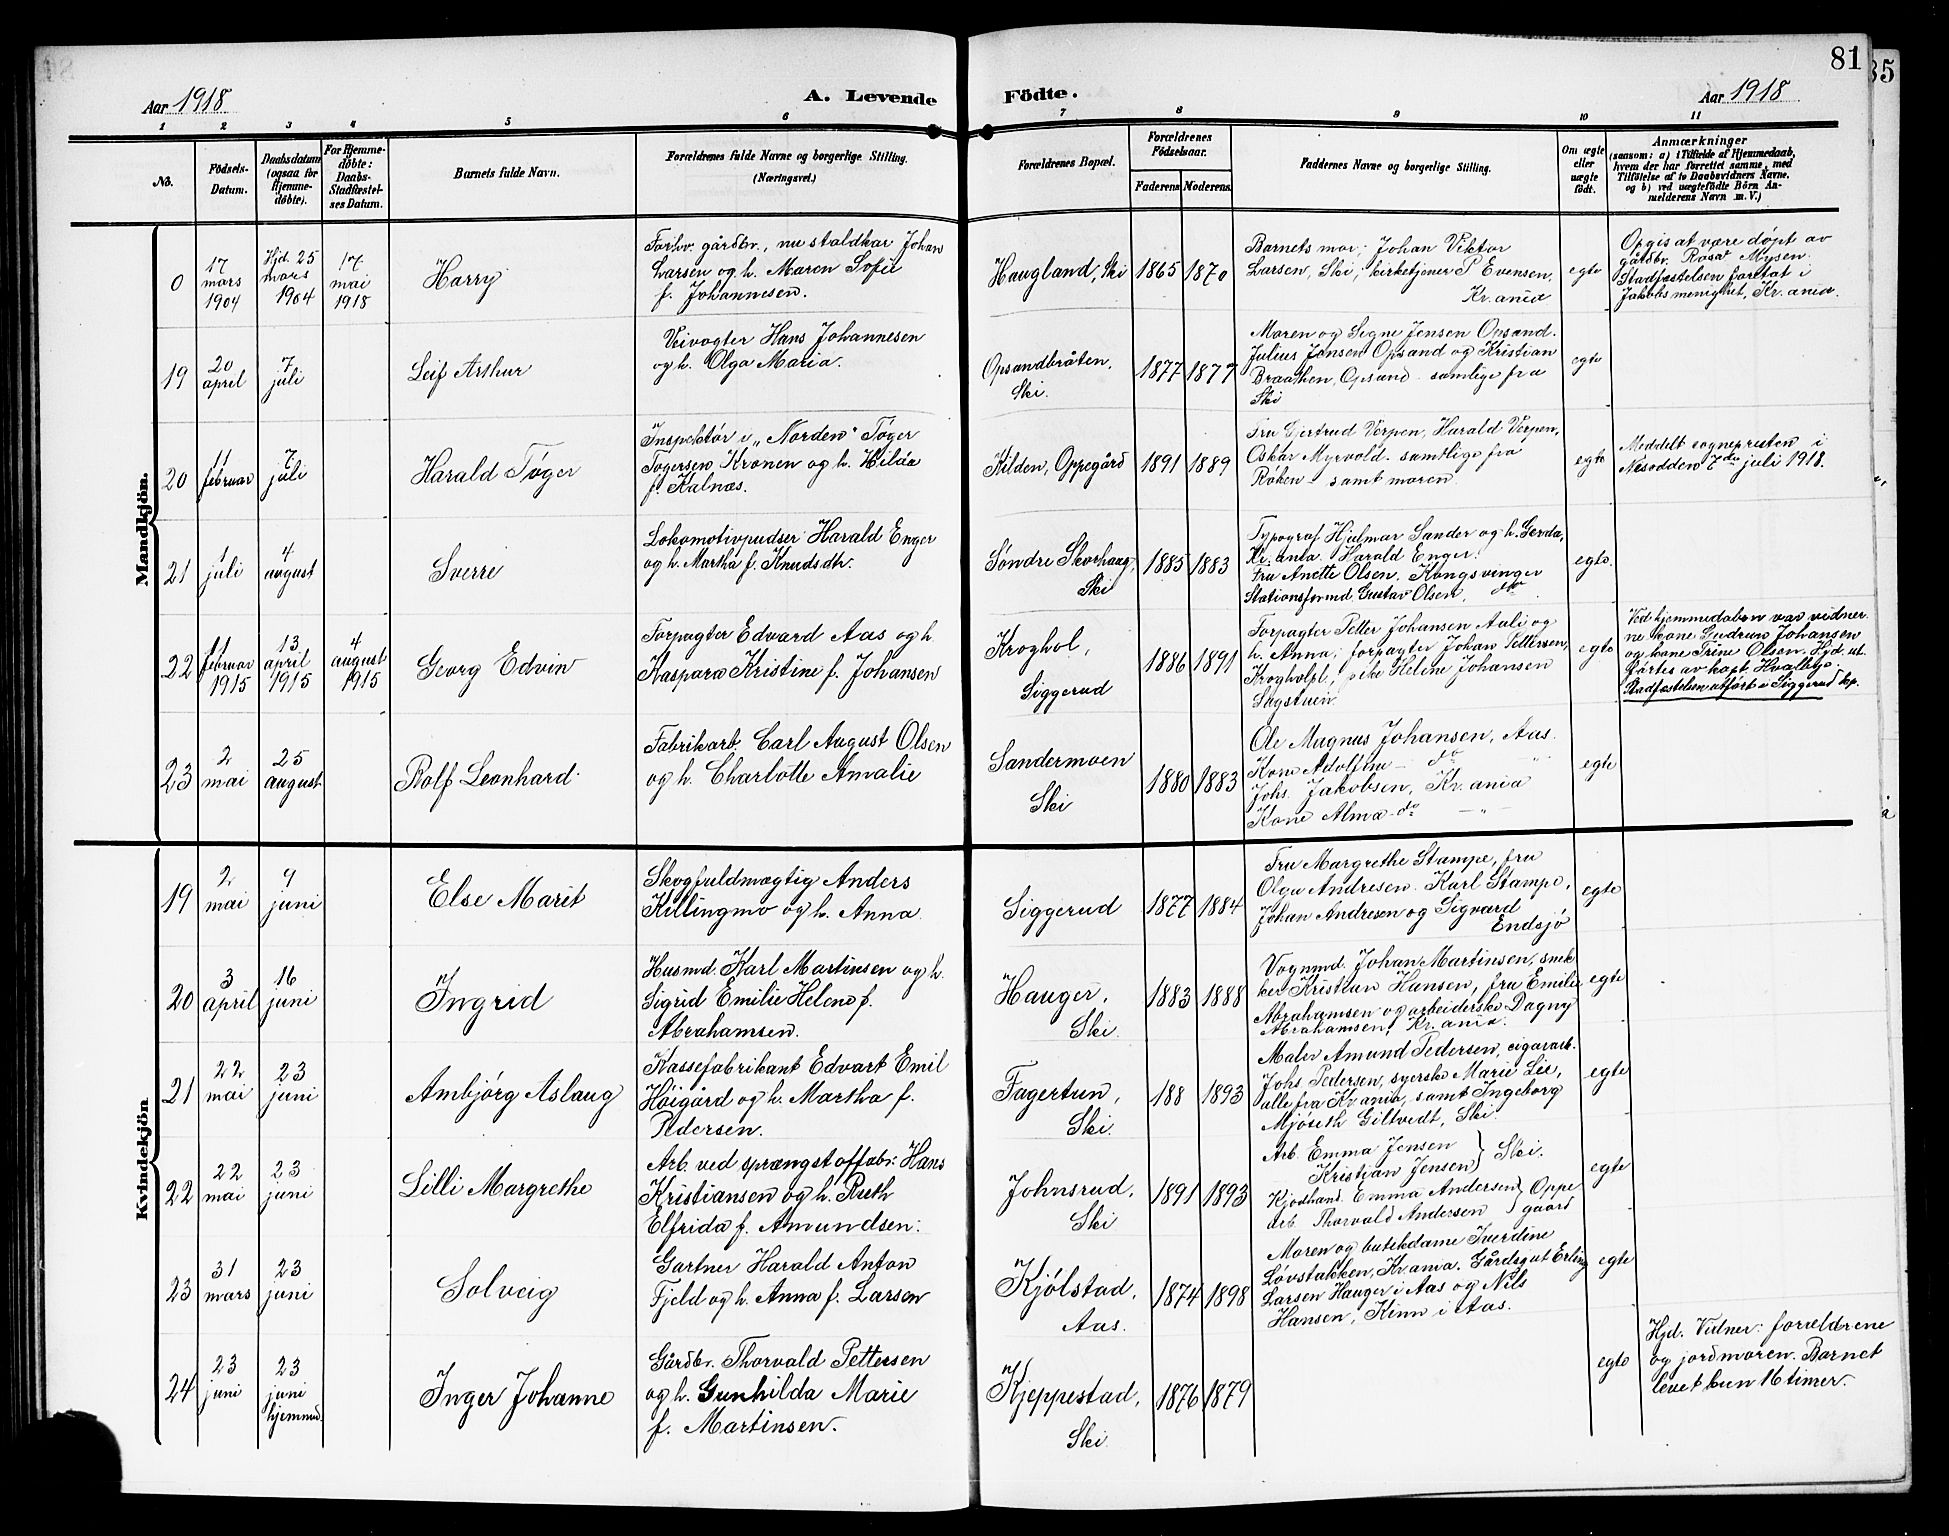 81
85
Aar 1918
A. Levende
Födte.
Aar 1918
1 2 3 4 5 6 7 8 9 10 11
No.
Födsels-
Datum.
Daabsdatum
(ogsaa for
Hjemme-
döbte).
For Hjemme-
døbte:
Daabs-
Stadfæstel-
ses Datum.
Barnets fulde Navn.
Forældrenes fulde Navne og borgerlige Stilling.
(Næringsvei.)
Forældrenes Bopæl.
Forældrenes
Födselsaar.
Faderens
Moderens
Faddernes Navne og borgerlige Stilling.
Om ægte
eller
uægte
födt.
Anmærkninger
(saasom: a) i Tilfælde af Hjemmedaab,
hvem der har forrettet samme, med
Tilföielse af to Daabsvidners Navne.
og b) ved uægtefödte Börn An-
melderens Navn m. V.)
Mandkjön.
0
17
mars
1904
Hjd. 25
mars
1904
17
mai
1918
Harry
Forhv. gårdbr., nu staldkar Johan
Larsen og h. Maren Sofie
f. Johannesen.
Haugland, Ski
1865
1870
Barnets mor; Johan Viktor
Larsen, Ski; kirketjener P. Evensen,
Kr.ania
egte
Opgis at være døpt av
gårdbr. Rosa Mysen.
Stadfæstelsen foretat i
Jakobs menighet, Kr.ania.
19
20
april
7
juli
Leif Arthur
Veivogter Hans Johannesen
og h. Olga Maria.
Opsandbråten,
Ski.
1877
1877
Moren og Signe Jensen Opsand.
Julius Jensen Opsand og Kristian
Braathen, Opsand - samtlige fra
Ski
egte
20
11
februar
7
juli
Harald Tøger
Inspektör i „Norden" Tøger
Tøgersen Kronen og h. Hilda
f. Kalnæs.
Kilden, Oppegård
1891
1889
Fru Gjertrud Verpen, Harald Verpen,
Oskar Myrvold - samtlige fra
Röken - samt moren.
egte
Meddelt sognepresten i
Nesodden 7de juli 1918.
21
1
juli
4
august
Sverre
Lokomotivpudser Harald Enger
og h. Martha f. Knudsdtr.
Søndre Skorhaug,
Ski
1885
1883
Typograf Hjalmar Sander og h. Gerda,
Kr.ania. Harald Enger.
Fru Anette Olsen, Kongsvinger
Stationsformd. Gustav Olsen, do
egte.
22
11
februar
1915
13
april
1915
4
august
1915
Georg Edvin
Forpagter Edvard Aas og h.
Kaspara Kristine f. Johansen
Kroghol,
Siggerud
1886
1891
Forpagter Petter Johansen Aali og
h. Anna; forpagter Johan Pettersen,
Krogholpl., pike Helene Johansen
Sagstuen.
egte
Ved hjemmedaben var vidner-
ne kone Gudrun Johansen
og kone Trine Olsen. Hjd. ut-
førtes av kapt. Hvalbye.
Stadfæstelsen utført i Siggerud kp.
23
2
mai
25
august
Rolf Leonhard
Fabrikarb. Carl August Olsen
og h. Charlotte Amalie
Sandermoen
Ski
1880
1883
Ole Magnus Johansen, Aas.
Kone Adolfine - do - " -
Johs. Jakobsen, Kr.ania
Kone Alma - do - " -
egte
Kvindekjön
19
2
mai
9
juni
Else Marit
Skogfuldmægtig Anders
Killingmo og h. Anna
Siggerud
1877
1884
Fru Margrethe Stampe, fru
Olga Andresen. Karl Stampe,
Johan Andresen og Sigvard
Endsjö
egte
20
3
april
16
juni
Ingrid
Husmd. Karl Martinsen og h.
Sigrid Emilie Helene f.
Abrahamsen.
Hauger,
Ski.
1883
1888
Vognmd. Johan Martinsen, snek-
ker Kristian Hansen, fru Emilie
Abrahamsen og arbeiderske Dagny
Abrahamsen, Kr.ania.
egte
21
22
mai
23
juni
Ambjörg Aslaug
Kassefabrikant Edvart Emil
Høigård og h. Martha f.
Pedersen.
Fagertun,
Ski.
188
1893
Maler Amund Pedersen, cigararb.
Johs Pedersen, syerske Marie Lie,
alle fra Kr.ania, samt Ingeborg
Mjöseth Giltvedt, Ski.
egte
22
22
mai
23
juni
Lilli Margrethe
Arb. ved sprængstoffabr. Hans
Kristiansen og h. Ruth
Elfrida f. Amundsen.
Johnsrud,
Ski
1891
1893
Arb. Emma Jensen
Kristian Jensen } Ski.
Kjøbhand. Emma Andersen } Oppe-
Arb. Thorvald Andersen } gaard
egte
23
31
mars
23
juni
Solveig
Gartner Harald Anton
Fjeld og h. Anna f. Larsen
Kjølstad,
Aas.
1874
1898
Moren og butikdame Iverdine
Løvstakken, Kr.ania. Gårdsgut Erling
Larsen Hauger i Aas og Nils
Hansen, Kinn i Aas.
egte
24
23
juni
23
juni
hjemmed.
Inger Johanne
Gårdbr. Thorvald Pettersen
og h. Gunhilda Marie
f. Martinsen.
Kjeppestad,
Ski.
1876
1879
egte
Hjd. Vidner: forældrene
og jordmoren. Barnet
levet kun 16 timer.